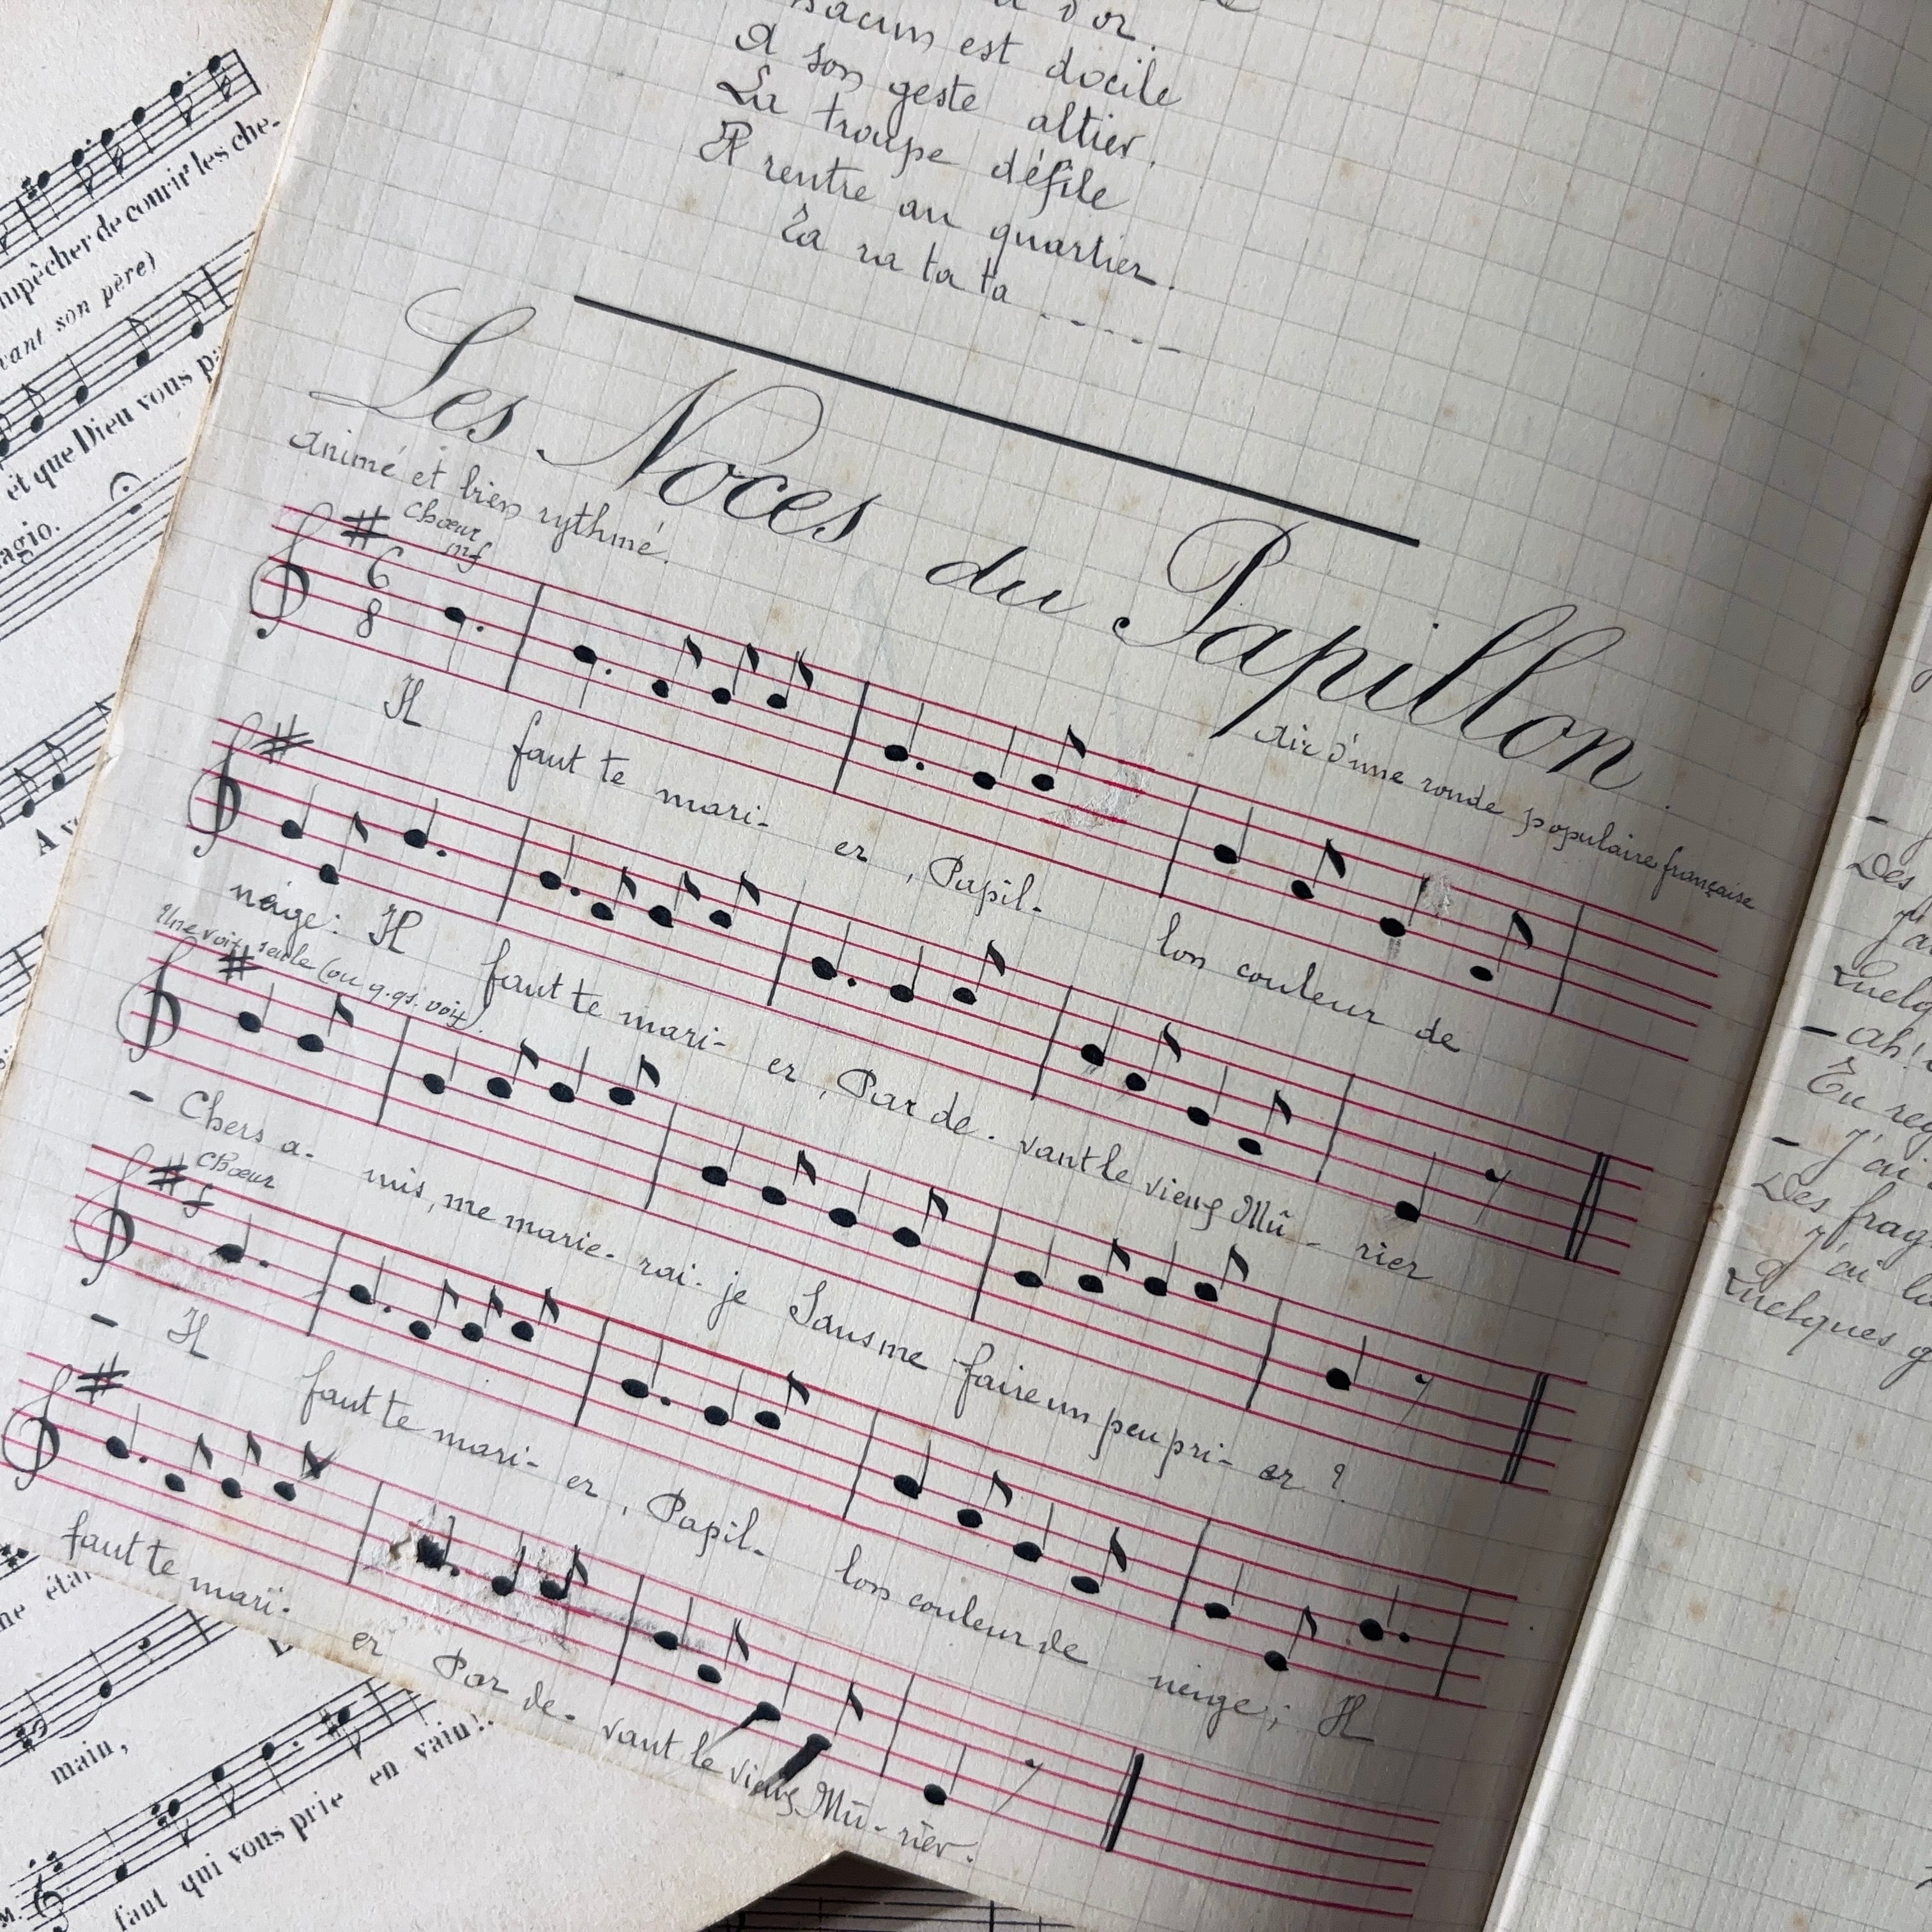 d'or.
est docile
A son geste altier.
La troupe défile
Et rentre au quartier.
Ta ra ta ta -----
Les Noces du Papillon.
Animé et bien rythmé.
Air d'une ronde populaire française
Chœur
mf
6
8
Il faut te mari- er, Papil- lon couleur de
neige: Il faut te mari- er, Par de- vant le vieux Mû- rier
Une voix seule (ou q.qs. voix).
- Chers a- mis, me marie- rai- je Sans me faire un peu pri- er ?
Chœur
f
- Il faut te mari- er, Papil- lon couleur de neige; Il
faut te mari- er Par de- vant le vieux Mû- rier.
mpêcher de courir les che-
vant son père)
et que Dieu vous pa
agio.
main,
faut qui vous prie en vain!
Des
J'a
Quelq
- Ah!
Tu reg
- J'ai
Des frag
J'ai
Quelques g